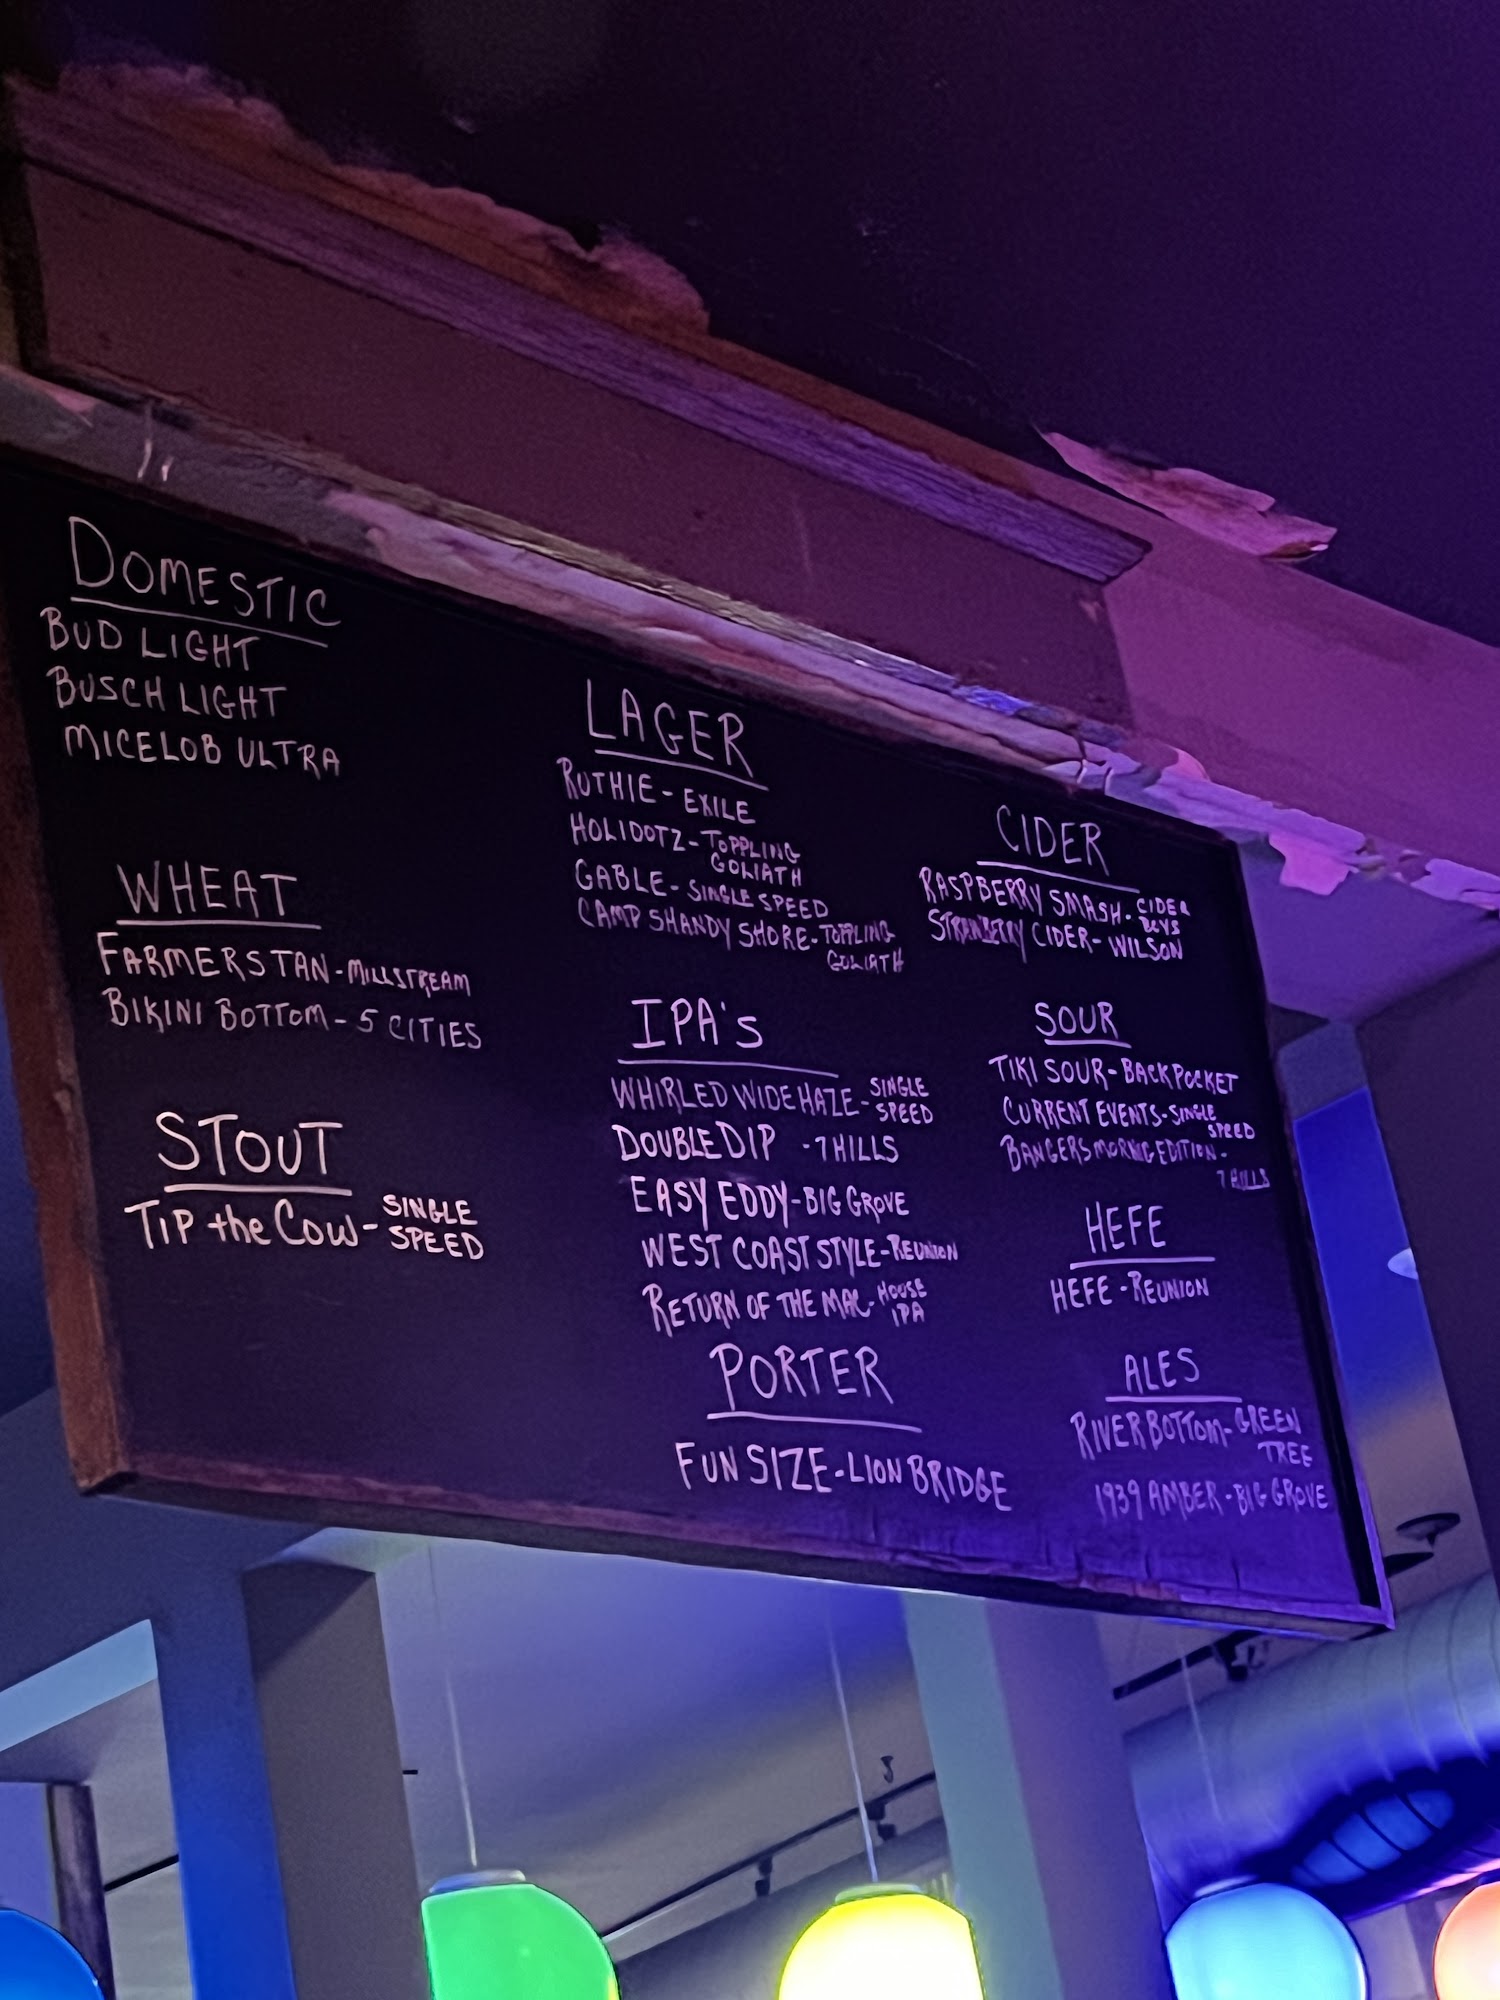 DOMESTIC
BUD LIGHT
BUSCH LIGHT
MICELOB ULTRA
WHEAT
FARMERS TAN - MILLSTREAM
BIKINI BOTTOM - 5 CITIES
STOUT
TIP the COW - SINGLE
SPEED
LAGER
RUTHIE - EXILE
HOLIDOTZ - TOPPLING
GOLIATH
GABLE - SINGLE SPEED
CAMP SHANDY SHORE - TOPPLING
GOLIATH
IPA's
WHIRLED WIDE HAZE - SINGLE
SPEED
DOUBLE DIP - 7 HILLS
EASY EDDY - BIG GROVE
WEST COAST STYLE - REUNION
RETURN OF THE MAC - HOUSE
IPA
PORTER
FUN SIZE - LION BRIDGE
CIDER
RASPBERRY SMASH - CIDER
BOYS
STRAWBERRY CIDER - WILSON
SOUR
TIKI SOUR - BACKPOCKET
CURRENT EVENTS - SINGLE
SPEED
BANGERS MORNING EDITION -
7 HILLS
HEFE
HEFE - REUNION
ALES
RIVER BOTTOM - GREEN
TREE
1939 AMBER - BIG GROVE